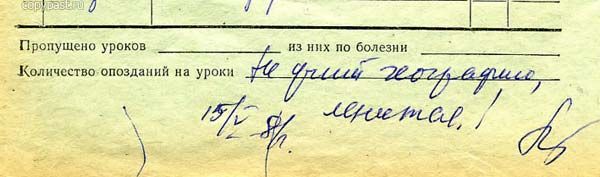 copypast.ru
Пропущено уроков из них по болезни
Количество опозданий на уроки Не учит географию,
15/V-81г. ленится!